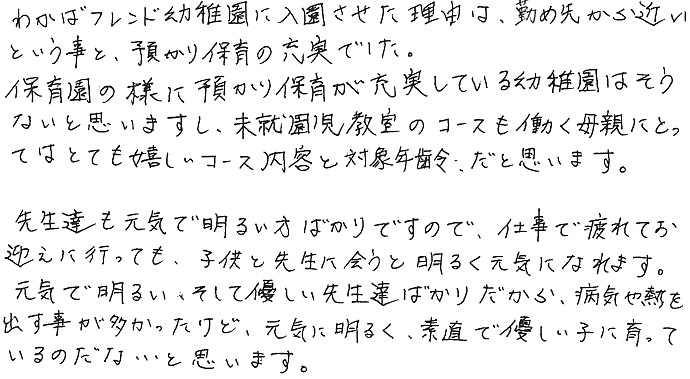 わかばフレンド幼稚園に入園させた理由は、勤め先から近い
という事と、預かり保育の充実でした。
保育園の様に預かり保育が充実している幼稚園はそう
ないと思いますし、未就園児教室のコースも働く母親にとっ
てはとても嬉しいコース内容と対象年齢、だと思います。
先生達も元気で明るい方ばかりですので、仕事で疲れてお
迎えに行っても、子供と先生に会うと明るく元気になれます。
元気で明るい、そして優しい先生達ばかりだから、病気や熱を
出す事が多かったけど、元気に明るく、素直で優しい子に育って
いるのだな…と思います。